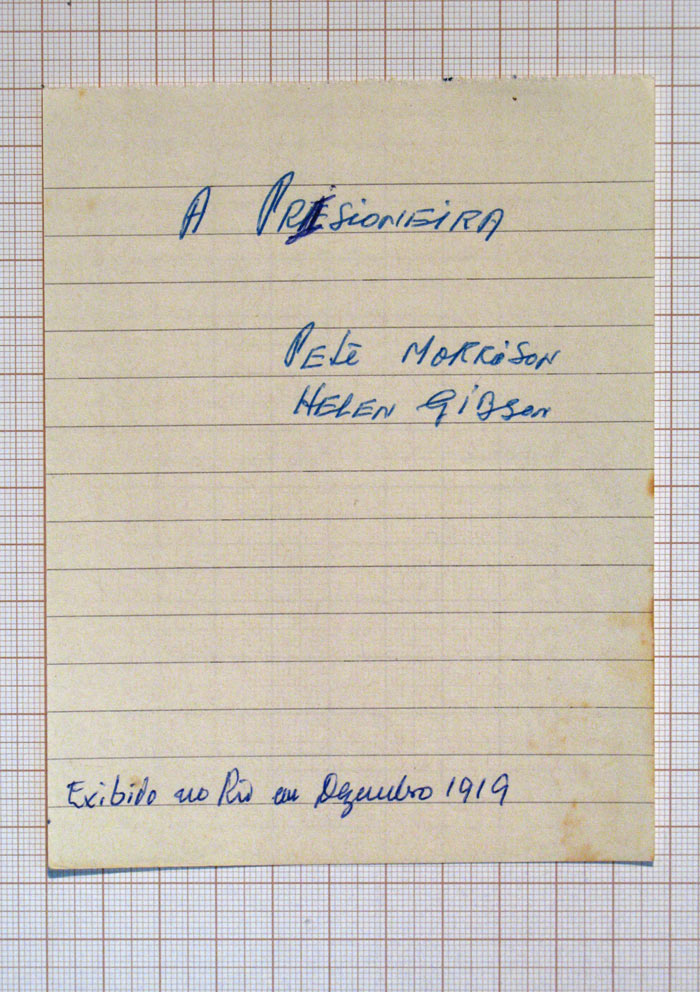 A PRISIONEIRA
PETE MORRISON
HELEN GIBSON
Exibido no Rio em Dezembro 1919